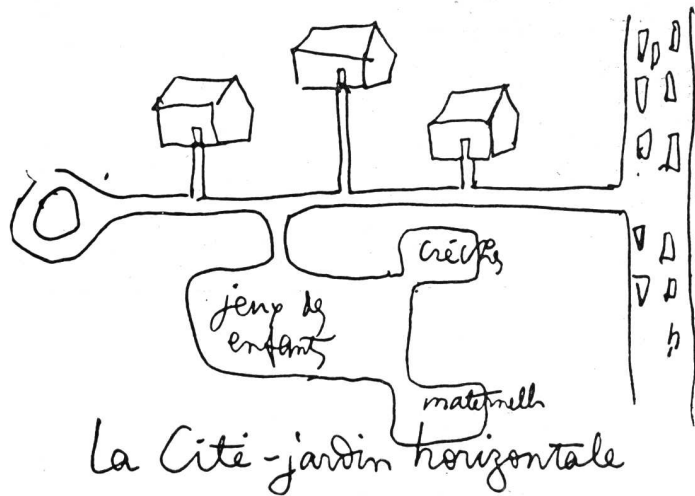 crèches
jeux des
enfants
maternelle
La Cité-jardin horizontale